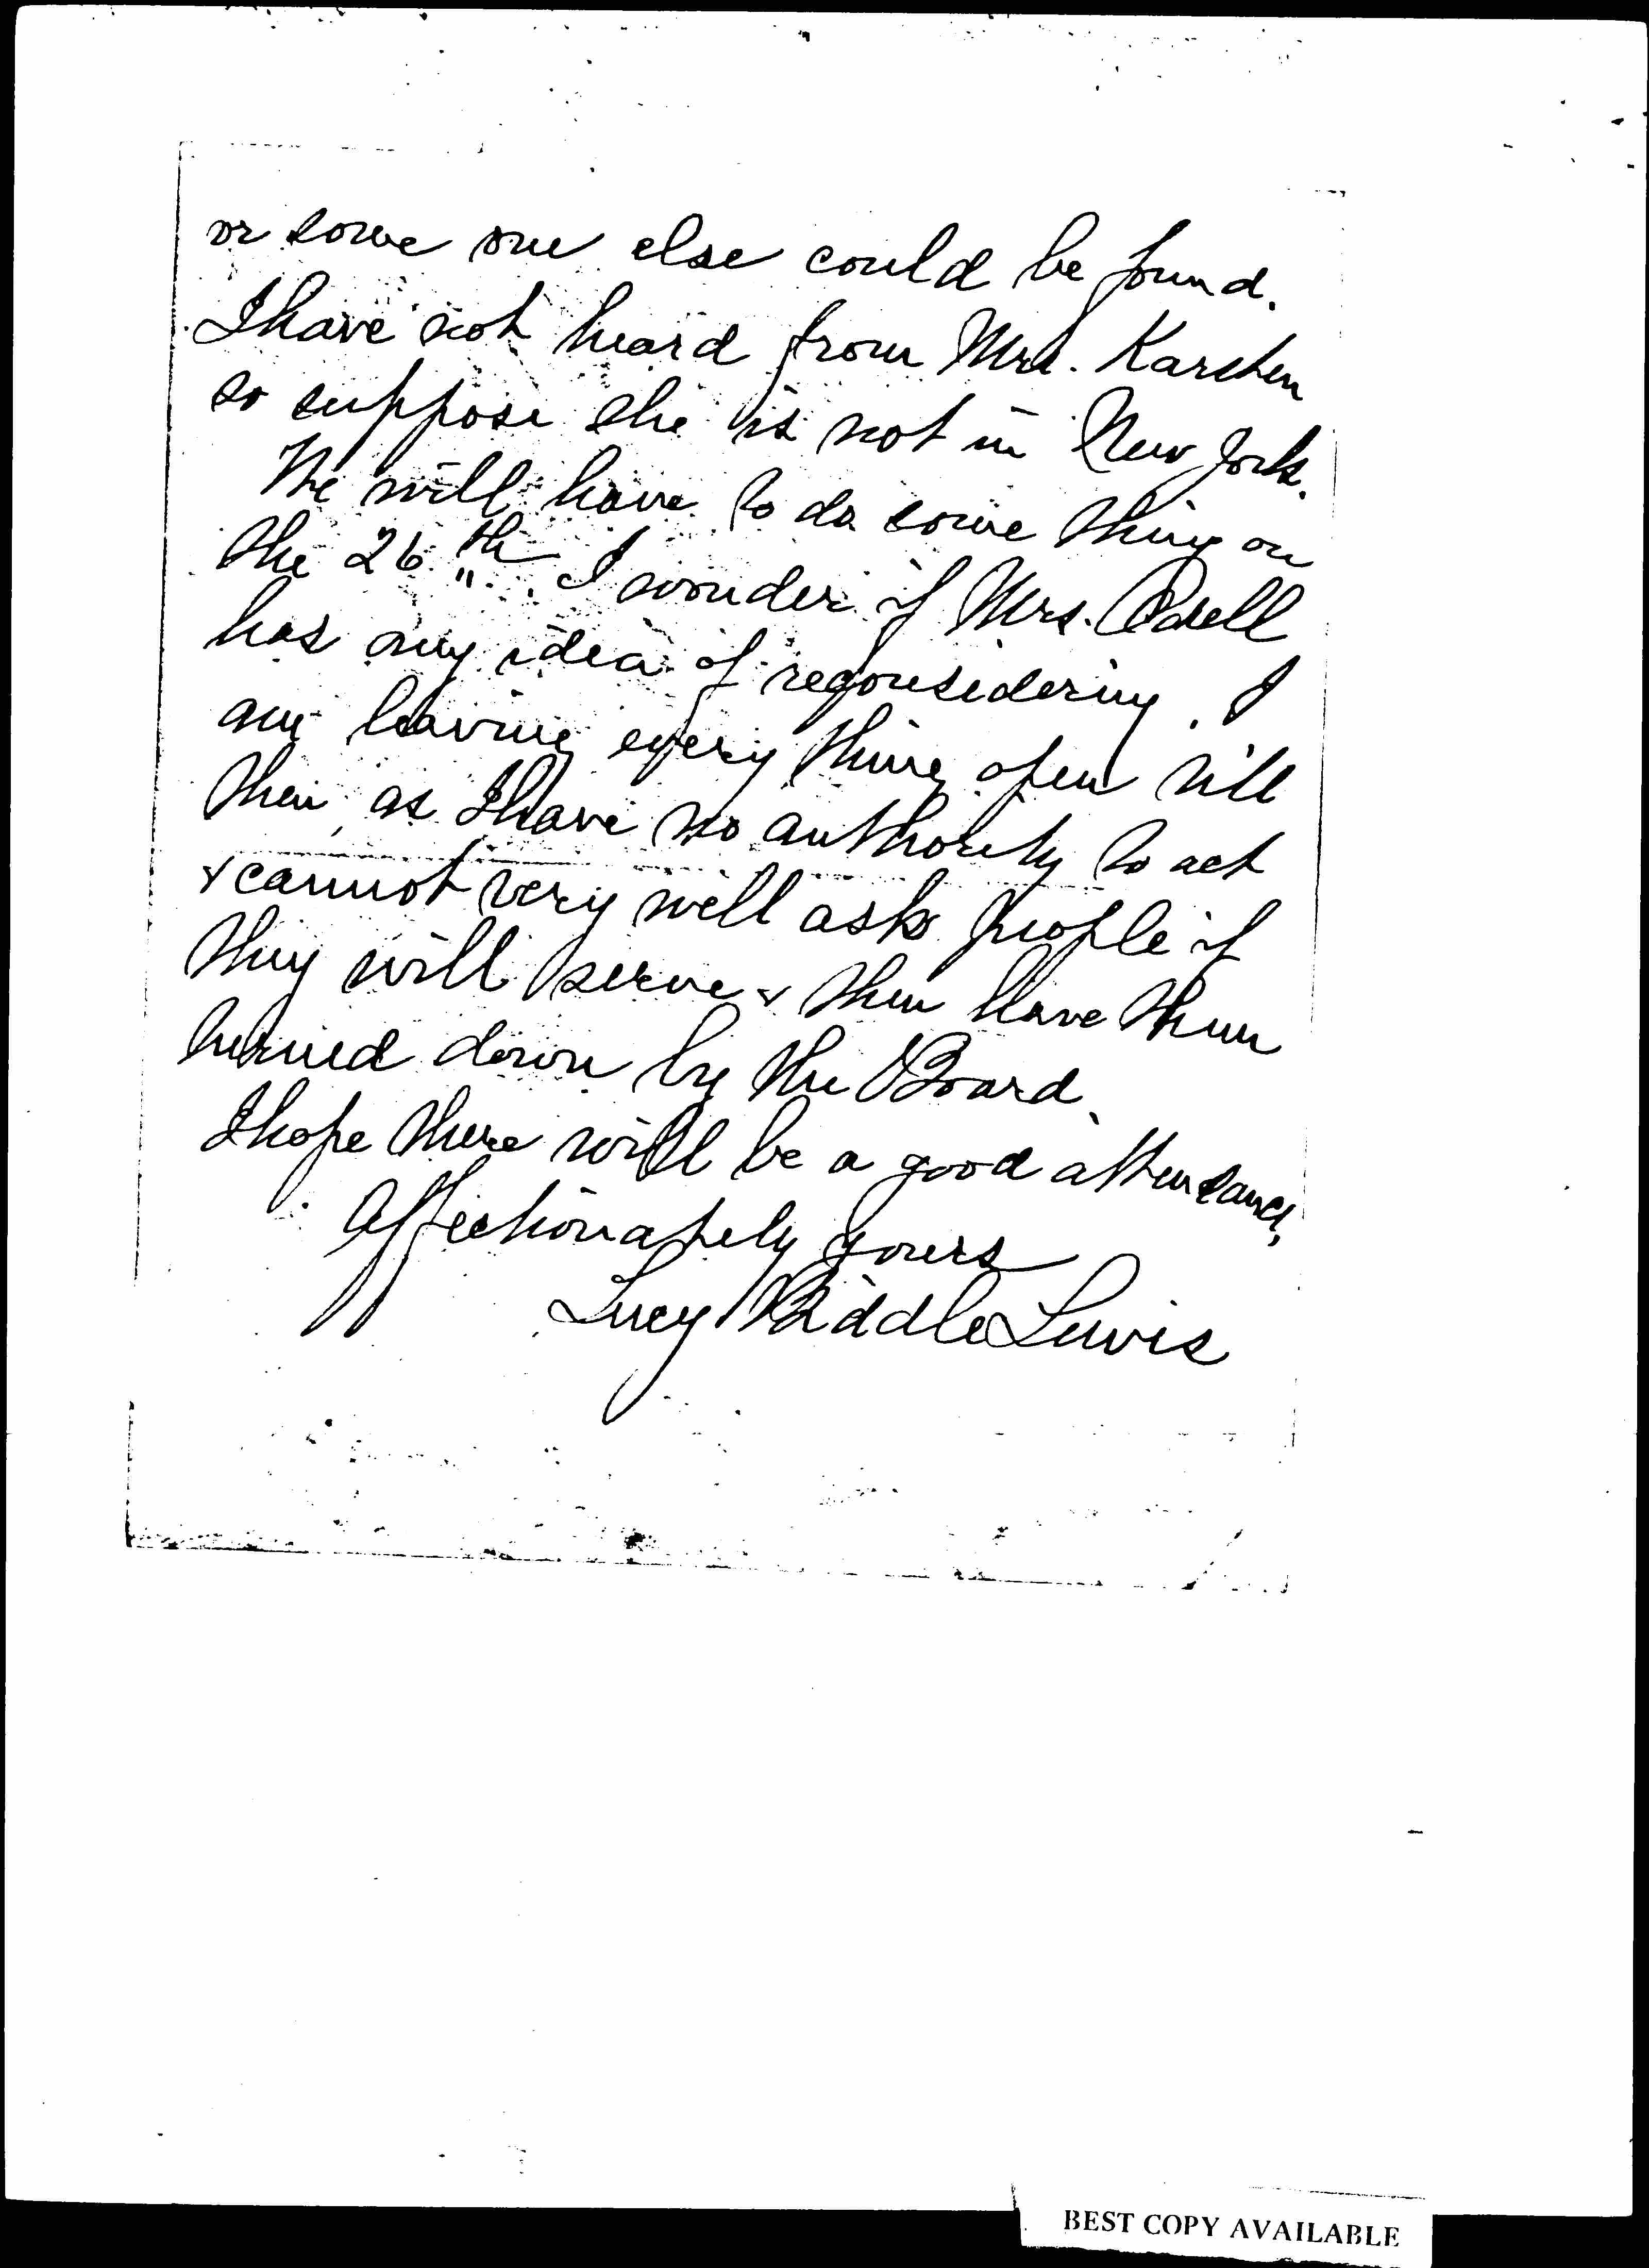 or some one else could be found.
I have not heard from Mrs. Karsten
so suppose she is not in New York.
We will have to do some thing on
the 26th. I wonder if Mrs. Odell
has any idea of reconsidering. I
am leaving every thing open till
then, as I have no authority to act
& cannot very well ask people if
they will serve & then have them
turned down by the Board.
I hope there will be a good attendance,
Affectionately yours
Lucy Biddle Lewis
BEST COPY AVAILABLE